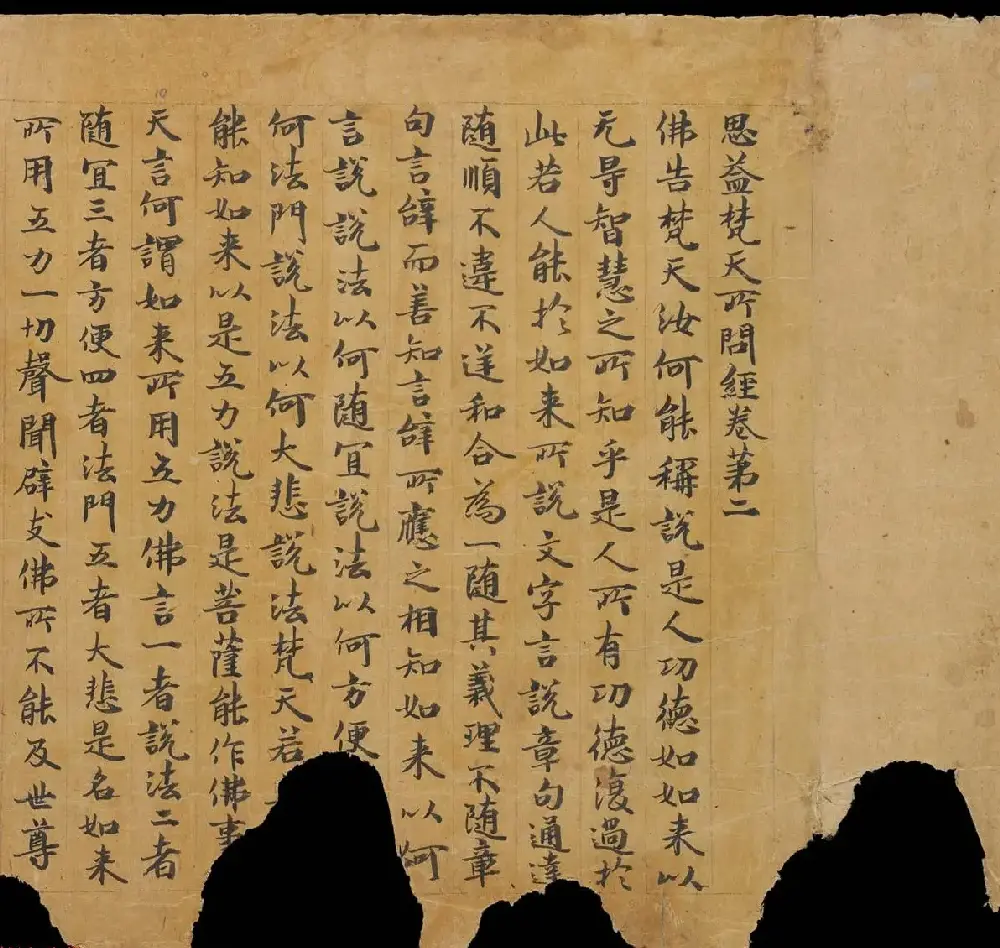 思益梵天所問經卷第二
佛告梵天汝何能稱說是人功德如如来以
无㝵智慧之所知乎是人所有功德復過於
此若人能於如来所說文字言說章句通達
随順不違不逆和合為一随其義理不随章
句言辝而善知言辝所應之相知如来以何
言說說法以何随冝說法以何方便
何法門說法以何大悲說法梵天若
能知如来以是五力說法是菩薩能作佛事
天言何謂如来所用五力佛言一者說法二者
随冝三者方便四者法門五者大悲是名如来
所用五力一切聲聞辟支佛所不能及世尊
10